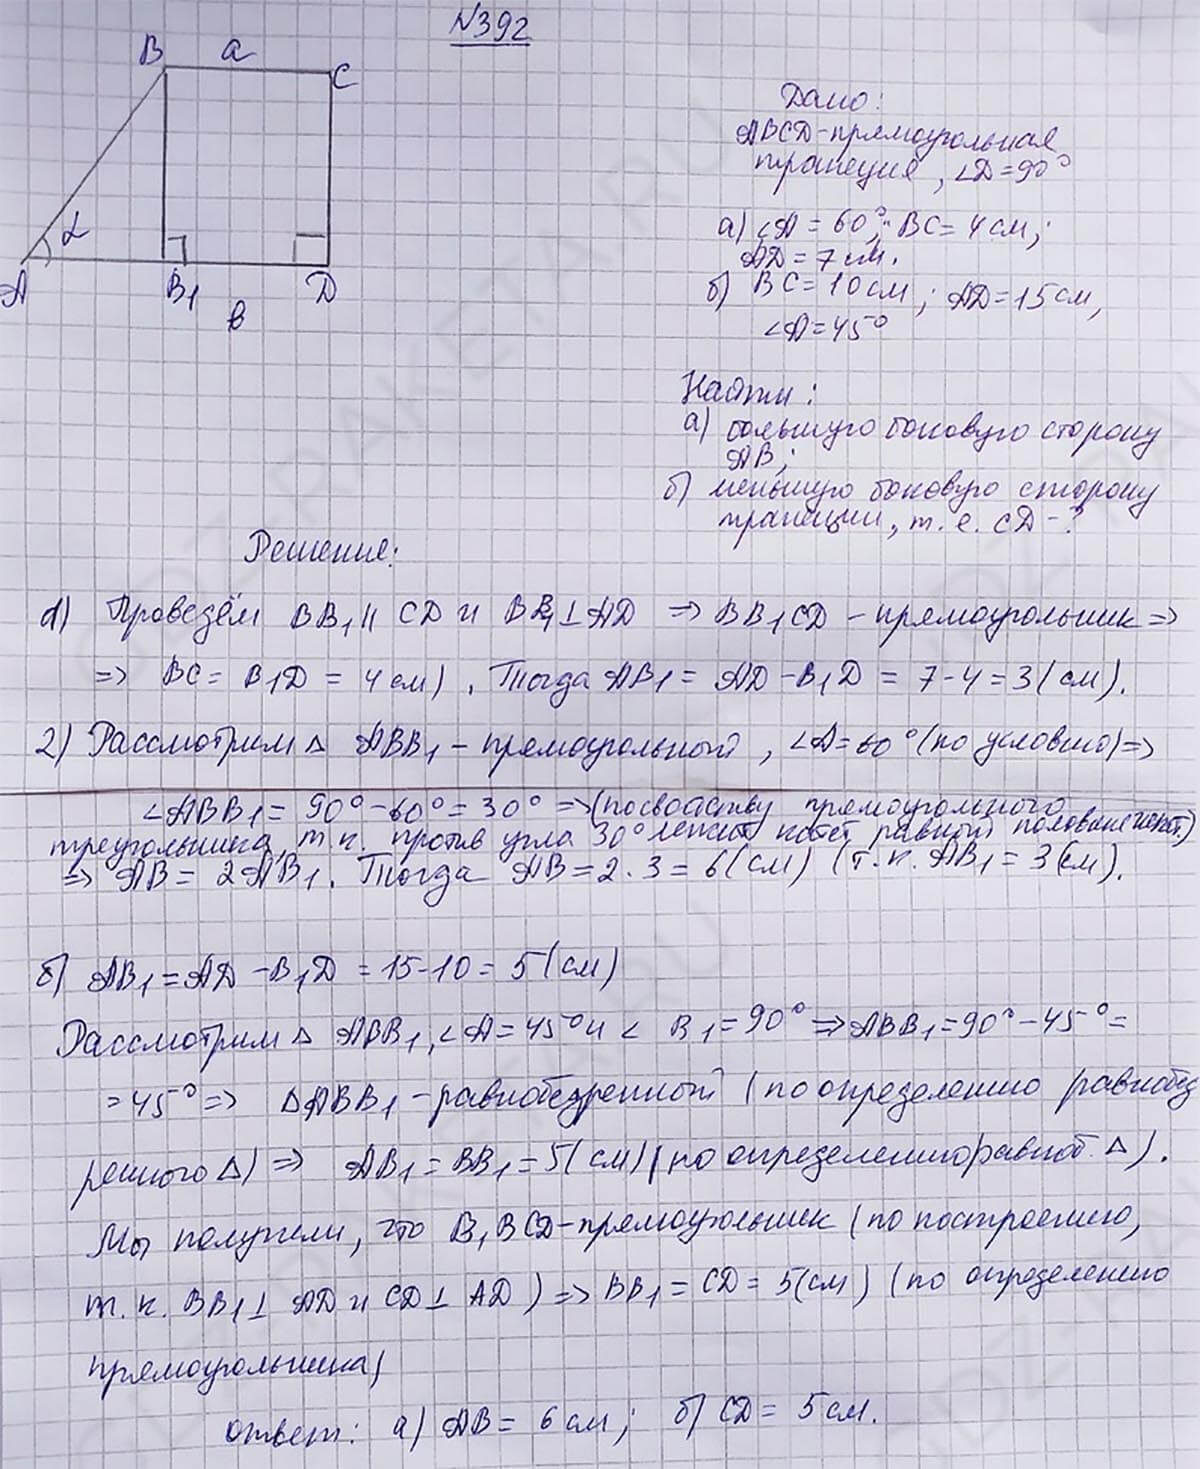 №392
B a C
α
A B₁ D
в
Дано:
ABCD-прямоугольная
трапеция, ∠D=90°
а) ∠A=60°; BC=4см;
AD=7см.
б) BC=10см; AD=15см,
∠A=45°
Найти:
а) большую боковую сторону
AB;
б) меньшую боковую сторону
трапеции, т.е. CD-?
Решение:
1) Проведём BB₁ || CD и BB₁⊥AD => BB₁CD - прямоугольник =>
=> BC = B₁D = 4см). Тогда AB₁ = AD - B₁D = 7-4=3(см).
2) Рассмотрим △ ABB₁ - прямоугольный, ∠A=60° (по условию) =>
∠ABB₁ = 90°-60°=30° => (по свойству прямоугольного
треугольника, т.к. против угла 30° лежит катет равный половине гипот.)
=> AB = 2AB₁. Тогда AB=2·3=6(см) (т.к. AB₁=3(см).
б) AB₁=AD-B₁D=15-10=5(см)
Рассмотрим △ ABB₁, ∠A=45° и ∠ B₁=90° => ABB₁=90°-45°=
=45° => △ABB₁-равнобедренный (по определению равнобед
ренного △) => AB₁=BB₁=5(см) (по определению равноб. △).
Мы получили, что B₁BCD-прямоугольник (по построению,
т.к. BB₁⊥ AD и CD⊥ AD) => BB₁=CD=5(см) (по определению
прямоугольника)
ответ: а) AB= 6см; б) CD= 5см.